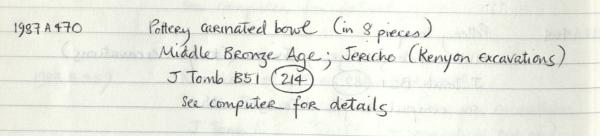 1987 A 470 Pottery carinated bowl (in 8 pieces)
Middle Bronze Age; Jericho (Kenyon excavations)
J Tomb B51 214
See computer for details